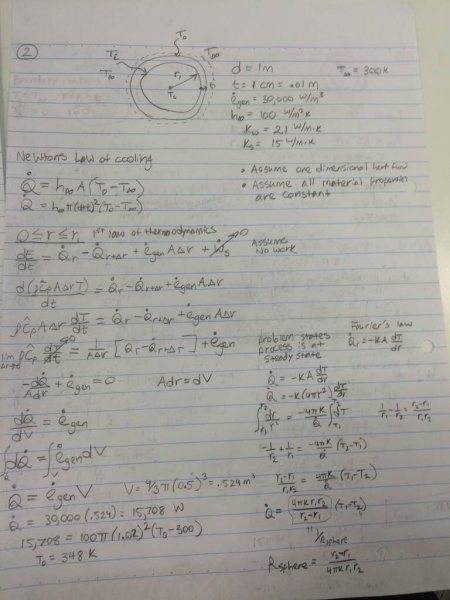 ②
T₀
T∞
T₁
T∞
r₁
Tₛ
d = 1m
T∞ = 300k
t = 1 cm = .01 m
ėgen = 30,000 W/m³
h∞ = 100 W/m²K
Kω = 2.1 W/m·K
Kₛ = 15 W/m·K
Newton's Law of cooling
Q̇ = h∞ A (T₀ - T∞)
Q̇ = h∞ π(d+t)² (T₀ - T∞)
• Assume one dimensional heat flow
• Assume all material properties are constant
0 ≤ r ≤ r₁ 1st law of thermodynamics
dE/dt = Q̇r - Q̇r+Δr + ėgen AΔr + Ẇs → 0
Assume No work
d(ρĈp AΔr T)/dt = Q̇r - Q̇r+Δr + ėgen AΔr
ρĈp AΔr dT/dt = Q̇r - Q̇r+Δr + ėgen AΔr
lim Δr→0 ρĈp dT/dt → 0 = 1/AΔr [Q̇r - Q̇r+Δr] + ėgen
problem states process is at steady state
-dQ̇/Adr + ėgen = 0 Adr = dV
dQ̇/dV = ėgen
∫dQ̇ = ∫ėgen dV
Q̇ = ėgen V V = 4/3 π (0.5)³ = .524 m³
Q̇ = 30,000 (.524) = 15,708 W
15,708 = 100π(1.02)² (T₀ - 300)
T₀ = 348 K
Fourier's law
Q̇r = -KA dT/dr
Q̇ = -KA dT/dr
Q̇ = -K(4πr²) dT/dr
∫ dr/r² = -4πK/Q̇ ∫ dT
1/r₁ - 1/r₂ = r₂-r₁/r₁r₂
-1/r₂ + 1/r₁ = -4πK/Q̇ (T₂-T₁)
r₂-r₁/r₁r₂ = 4πK/Q̇ (T₁-T₂)
Q̇ = (4πK r₁r₂/r₂-r₁)(T₁-T₂)
1/Rsphere
Rsphere = r₂-r₁/4πK r₁r₂